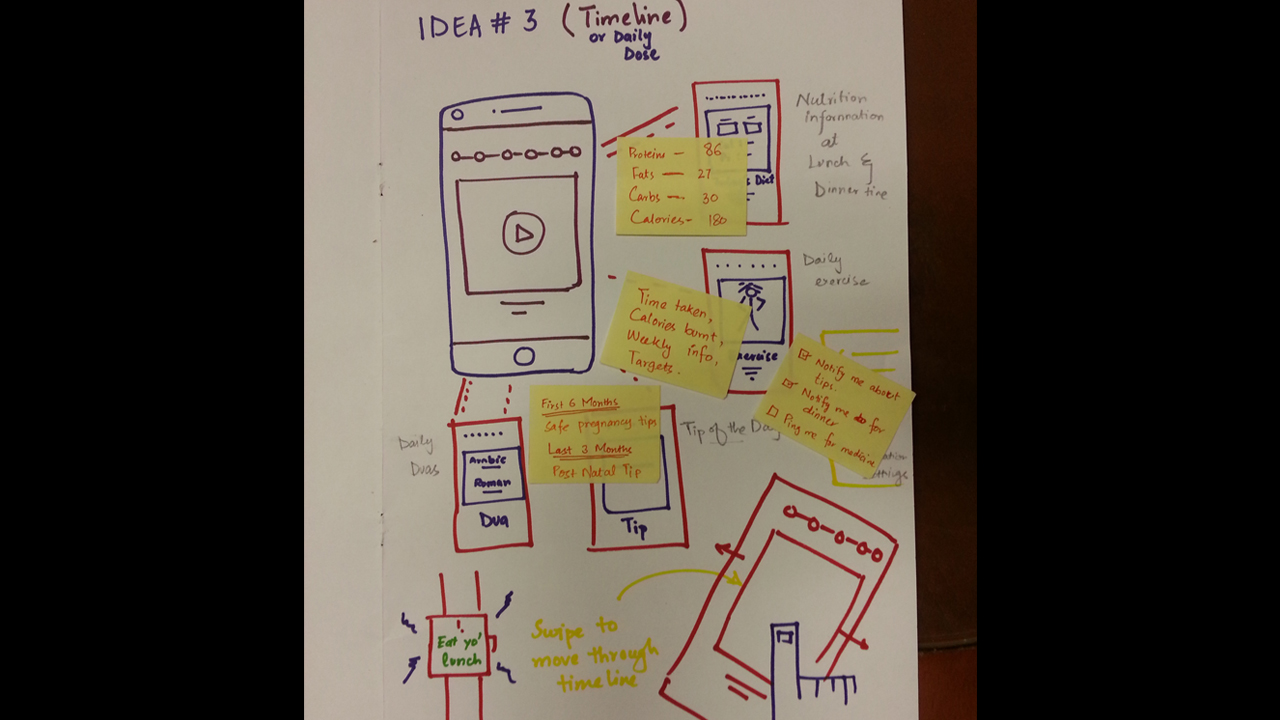 IDEA # 3 (Timeline)
or Daily
Dose
Nutrition
information
at
Lunch &
Dinner time
Proteins — 86
Fats — 27
Carbs — 30
Calories - 180
Diet
Daily
exercise
Time taken,
Calories burnt,
Weekly info,
Targets.
Notify me about
tips.
Notify me for
dinner
Ping me for medicine
First 6 Months
Safe pregnancy tips
Last 3 Months
Post Natal Tip
Tip of the Day
Tip
Daily
Duas
Arabic
Roman
Dua
Eat yo'
lunch
Swipe to
move through
timeline